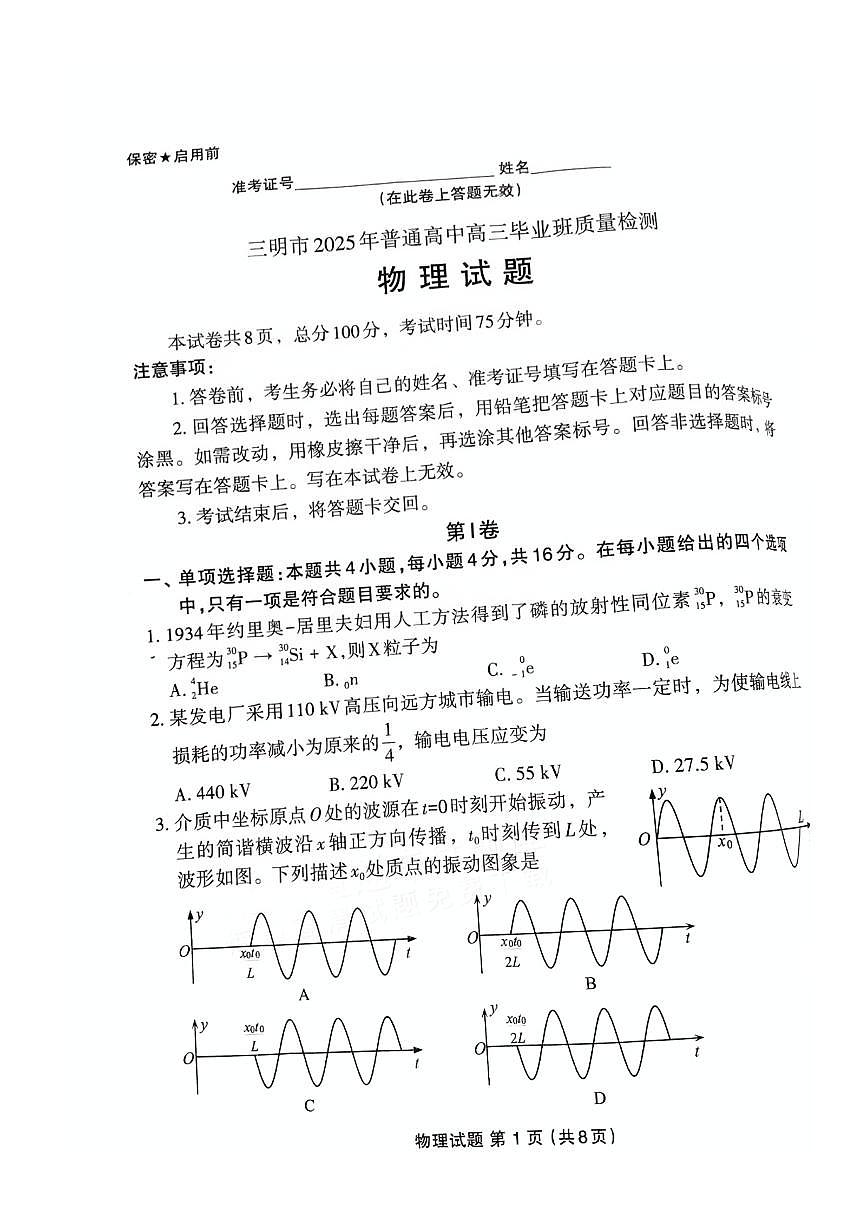 保密★启用前
准考证号 姓名
(在此卷上答题无效)
三明市2025年普通高中高三毕业班质量检测
物理试题
本试卷共8页，总分100分，考试时间75分钟。
注意事项：
1.答卷前，考生务必将自己的姓名、准考证号填写在答题卡上。
2.回答选择题时，选出每题答案后，用铅笔把答题卡上对应题目的答案标号
涂黑。如需改动，用橡皮擦干净后，再选涂其他答案标号。回答非选择题时，将
答案写在答题卡上。写在本试卷上无效。
3.考试结束后，将答题卡交回。
第Ⅰ卷
一、单项选择题：本题共4小题，每小题4分，共16分。在每小题给出的四个选项
中，只有一项是符合题目要求的。
1. 1934年约里奥-居里夫妇用人工方法得到了磷的放射性同位素 ³⁰₁₅P，³⁰₁₅P的衰变
方程为 ³⁰₁₅P → ³⁰₁₄Si + X，则X粒子为
A. ⁴₂He B. ₀n C. ⁰₋₁e D. ⁰₁e
2. 某发电厂采用110 kV高压向远方城市输电。当输送功率一定时，为使输电线上
损耗的功率减小为原来的1/4，输电电压应变为
A. 440 kV B. 220 kV C. 55 kV D. 27.5 kV
3. 介质中坐标原点O处的波源在t=0时刻开始振动，产
生的简谐横波沿x轴正方向传播，t₀时刻传到L处，
波形如图。下列描述x₀处质点的振动图象是
y O x₀ L
y O x₀t₀ L t
A
y O x₀t₀ 2L t
B
y O x₀t₀ L t
C
y O x₀t₀ 2L t
D
物理试题 第1页（共8页）